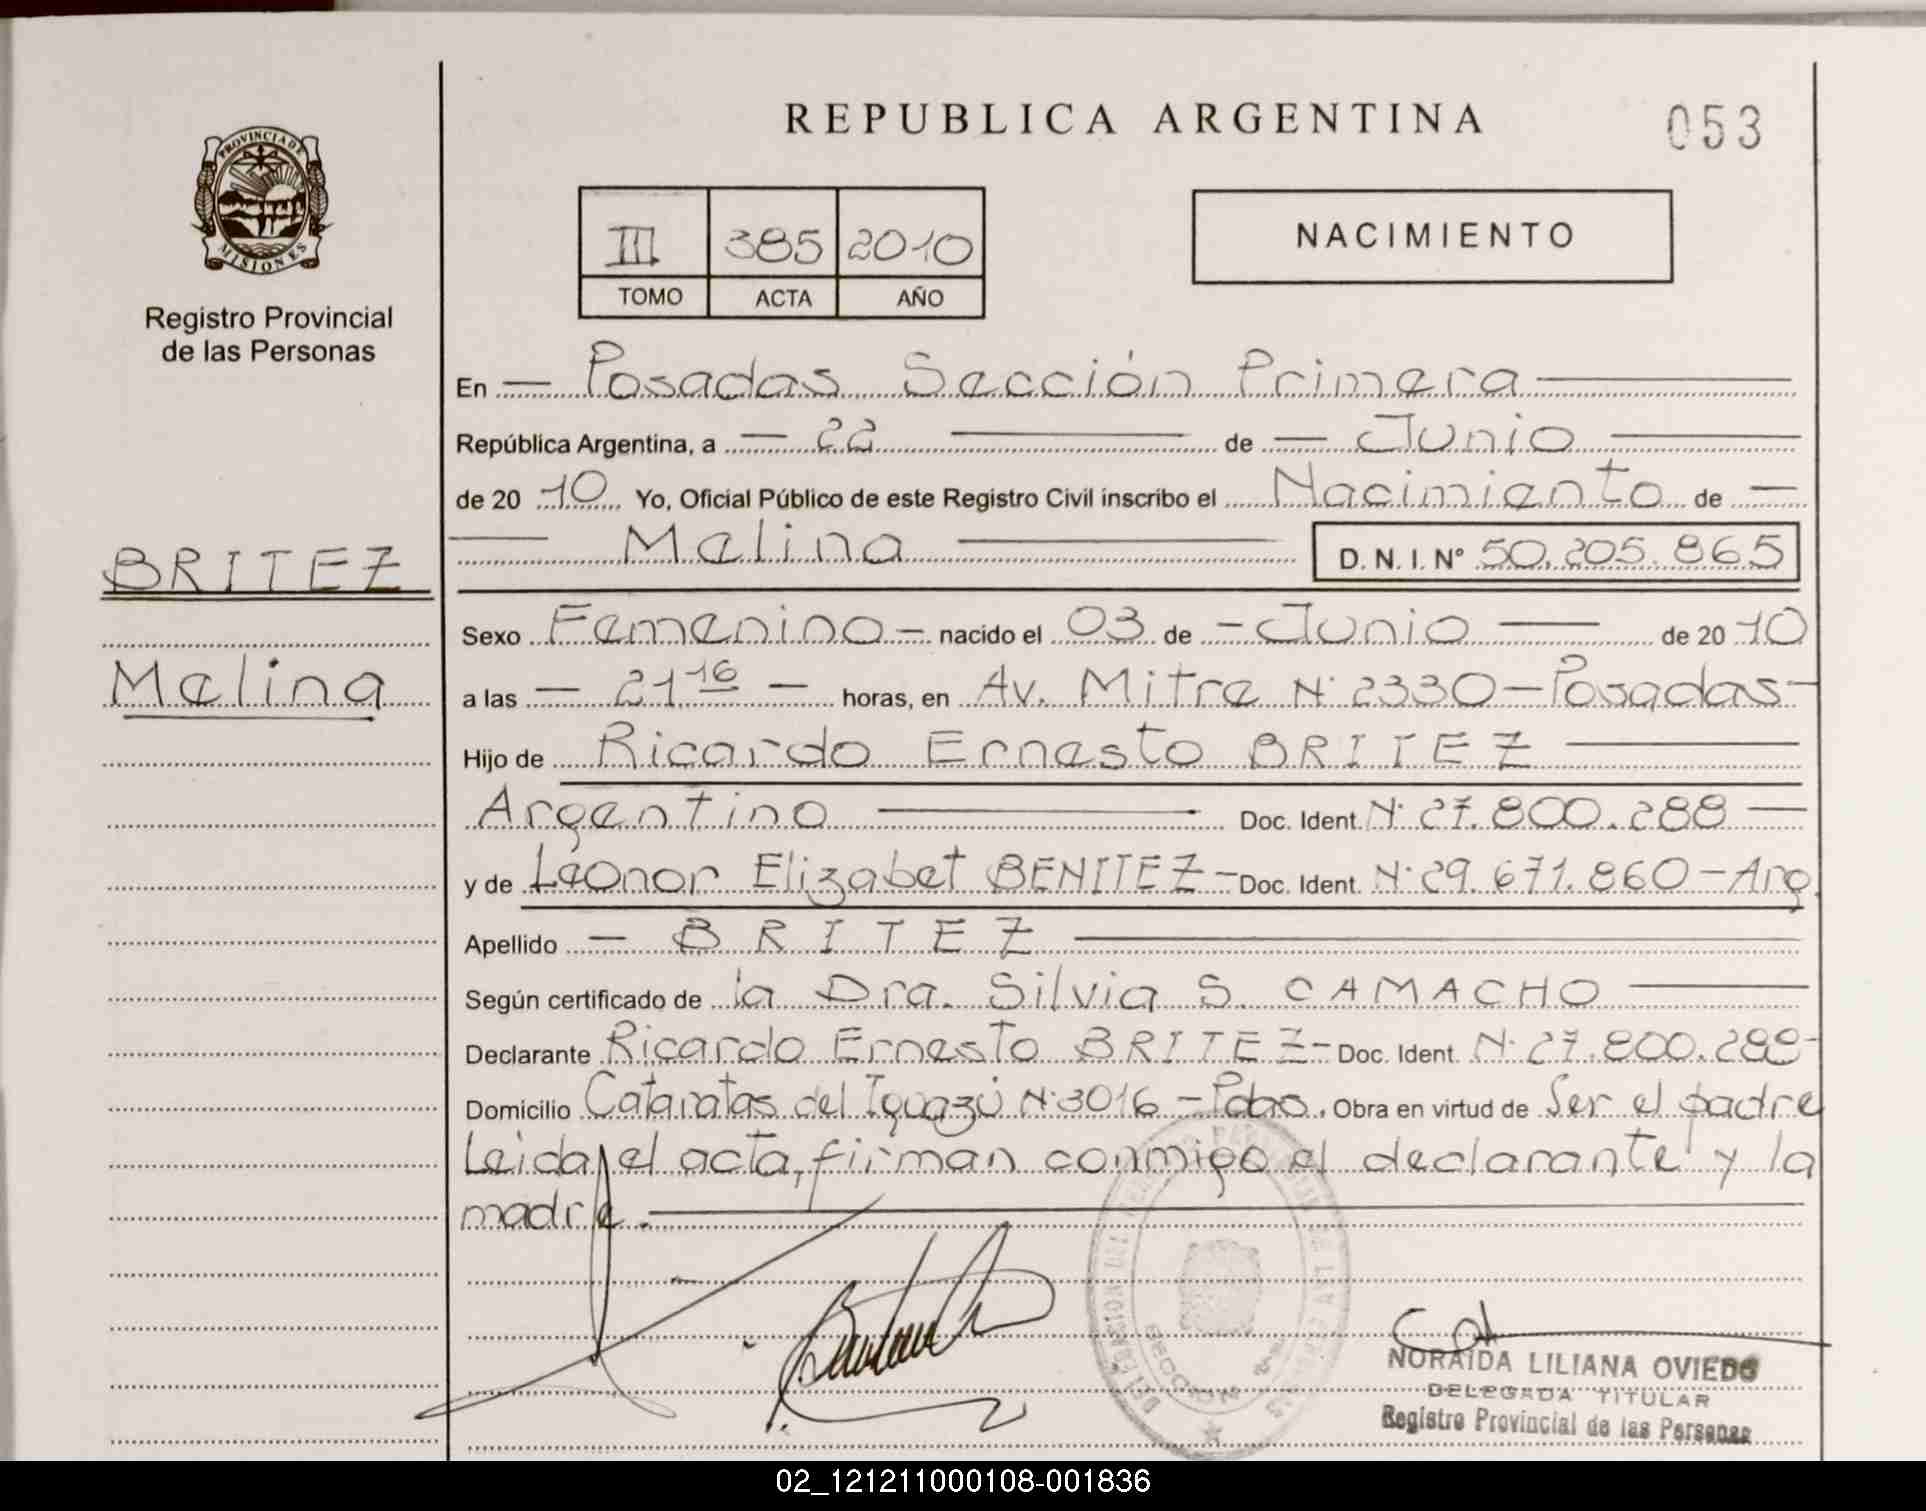 REPUBLICA ARGENTINA
053
PROVINCIA DE
MISIONES
Registro Provincial
de las Personas
III 385 2010
TOMO ACTA AÑO
NACIMIENTO
En — Posadas Sección Primera —
República Argentina, a — 22 — de — Junio —
de 20 10 Yo, Oficial Público de este Registro Civil inscribo el Nacimiento de —
— Melina — D. N. I. Nº 50.205.865
BRITEZ
Melina
Sexo Femenino — nacido el 03 de — Junio — de 20 10
a las — 21,16 — horas, en Av. Mitre Nº 2330 — Posadas —
Hijo de Ricardo Ernesto BRITEZ —
Argentino — Doc. Ident. Nº 27.800.288 —
y de Leonor Elizabet BENITEZ — Doc. Ident. Nº 29.671.860 — Arg.
Apellido — BRITEZ —
Según certificado de la Dra. Silvia S. CAMACHO —
Declarante Ricardo Ernesto BRITEZ — Doc. Ident. Nº 27.800.288 —
Domicilio Cataratas del Iguazú Nº 3016 — Pdas. Obra en virtud de Ser el padre
Leida el acta, firman conmigo el declarante y la
madre. —
NORAIDA LILIANA OVIEDO
DELEGADA TITULAR
Registro Provincial de las Personas
02_121211000108-001836